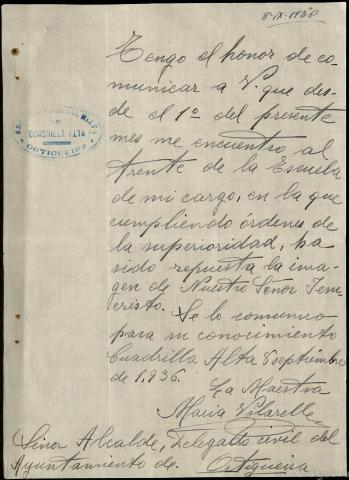 8-IX-1936
Tengo el honor de co-
municar a V. que des-
de el 1º del presente
mes me encuentro al
frente de la Escuela
de mi cargo, en la que
cumpliendo órdenes de
la superioridad, ha
sido repuesta la ima-
gen de Nuestro Señor Jesu-
cristo. Se lo comunico
para su conocimiento
Cuadrilla Alta 8 septiembre
de 1,936.
La Maestra
María Vilarelle
Señor Alcalde, Delegado civil del
Ayuntamiento de Ortigueira
CUADRILLA ALTA
ORTIGUEIRA